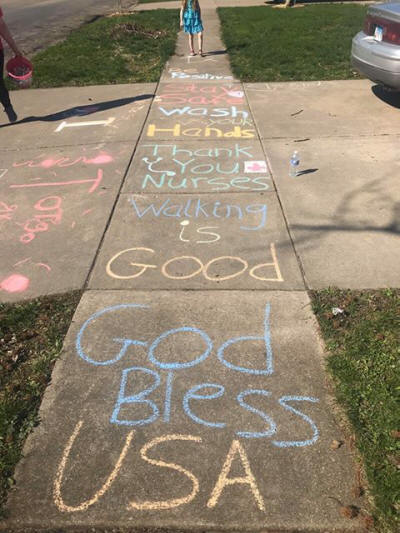 Be
Positive
Stay
Safe
Wash
Your
Hands
Thank
You
Nurses
Walking
is
Good
God
Bless
USA